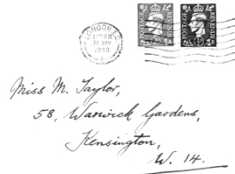 LONDON
Miss M. Taylor,
58, Warwick Gardens,
Kensington,
W. 14.